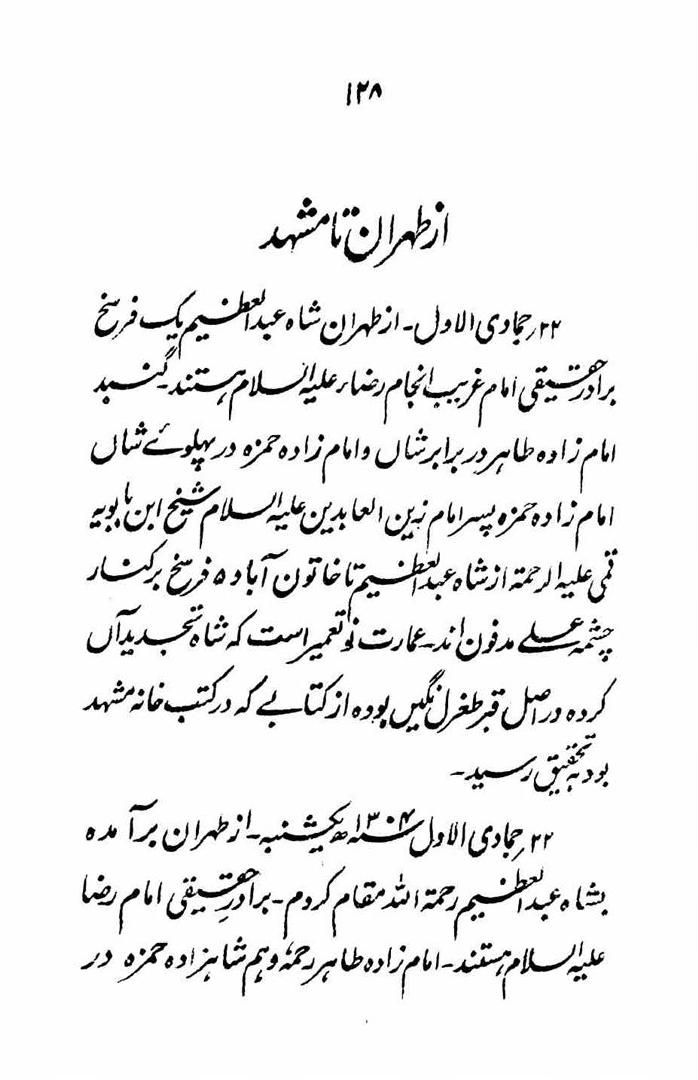 ۱۲۸
از طهران تا مشهد
۲۲؍ جمادی الاول۔ از طهران شاه عبدالعظیم یک فرسخ
برادر حقیقی امام غریب انجام رضاء علیه السلام هستند۔ گنبد
امام زاده طاهر در برابر شاں و امام زاده حمزه در پهلوئے شاں
امام زاده حمزه پسر امام زین العابدین علیه السلام شیخ ابن بابویه
قمی علیه الرحمة از شاه عبدالعظیم تا خاتون آباد ۵ فرسخ بر کنار
چشمه علی مدفون اند۔ عمارت نو تعمیر است که شاه تجدید آں
کرده در اصل قبر طغرل نگیں بوده از کتابے که در کتب خانه مشهد
بود به تحقیق رسید۔
۲۲؍ جمادی الاول سنه ۱۳۰۴ھ یکشنبه۔ از طهران برآمده
بشاه عبدالعظیم رحمة الله مقام کردم۔ برادرِ حقیقی امام رضا
علیه السلام هستند۔ امام زاده طاهر رحمهٗ و هم شاهزاده حمزه در